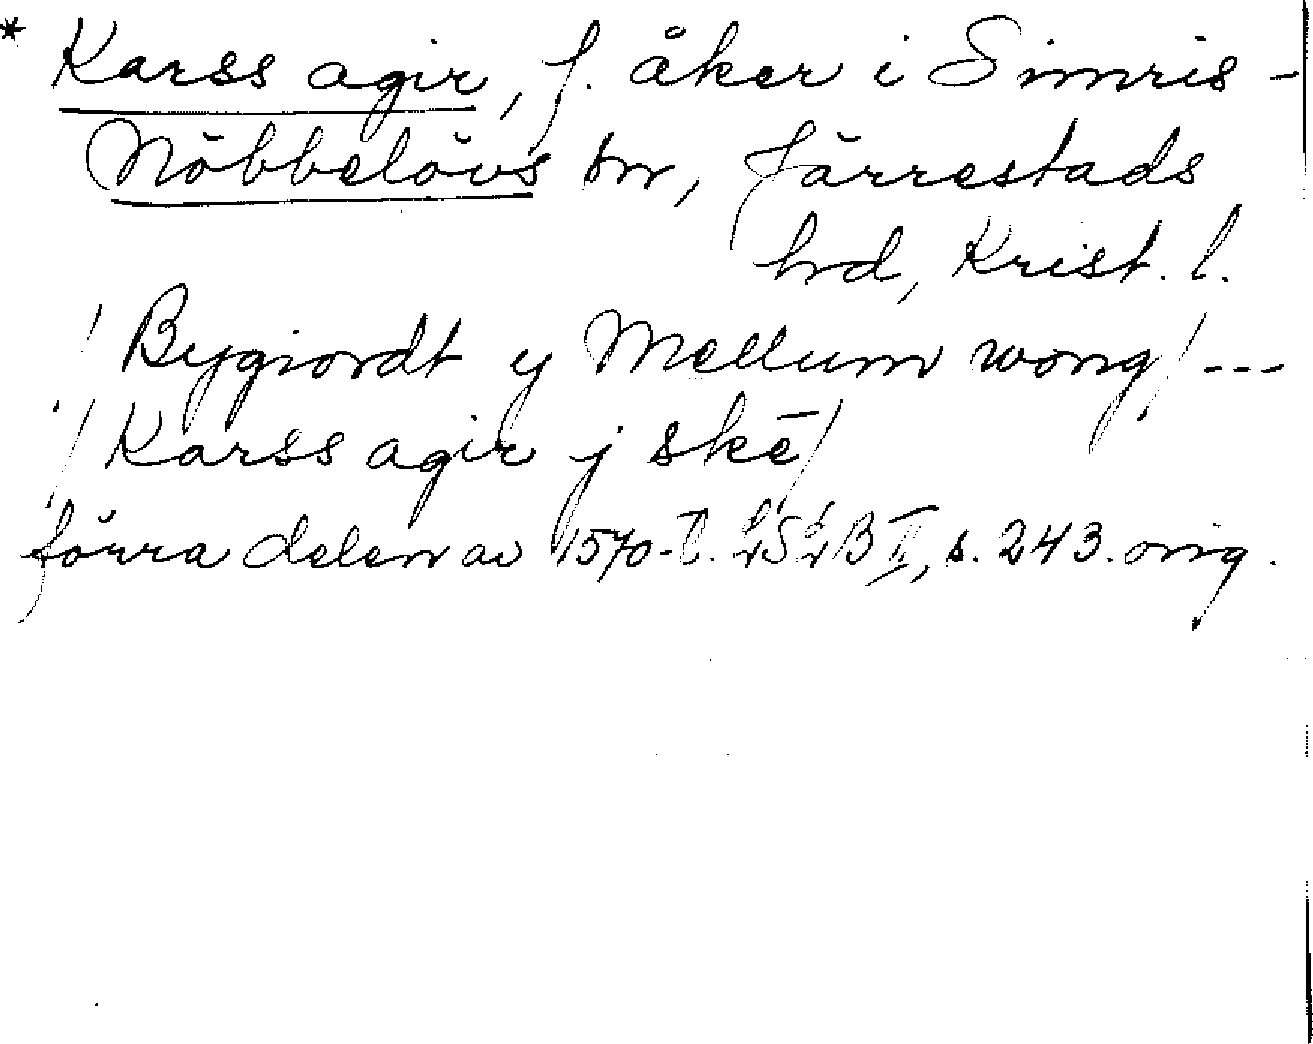 * Karss agir, f. åker i Simris-
Nöbbelövs sn, Järrestads
hd, Krist. l.
/ Bygiordt y Mellum wong / ---
/ Karss agir j skē /
förra delen av 1570-t. LSLB II, s. 243. orig.